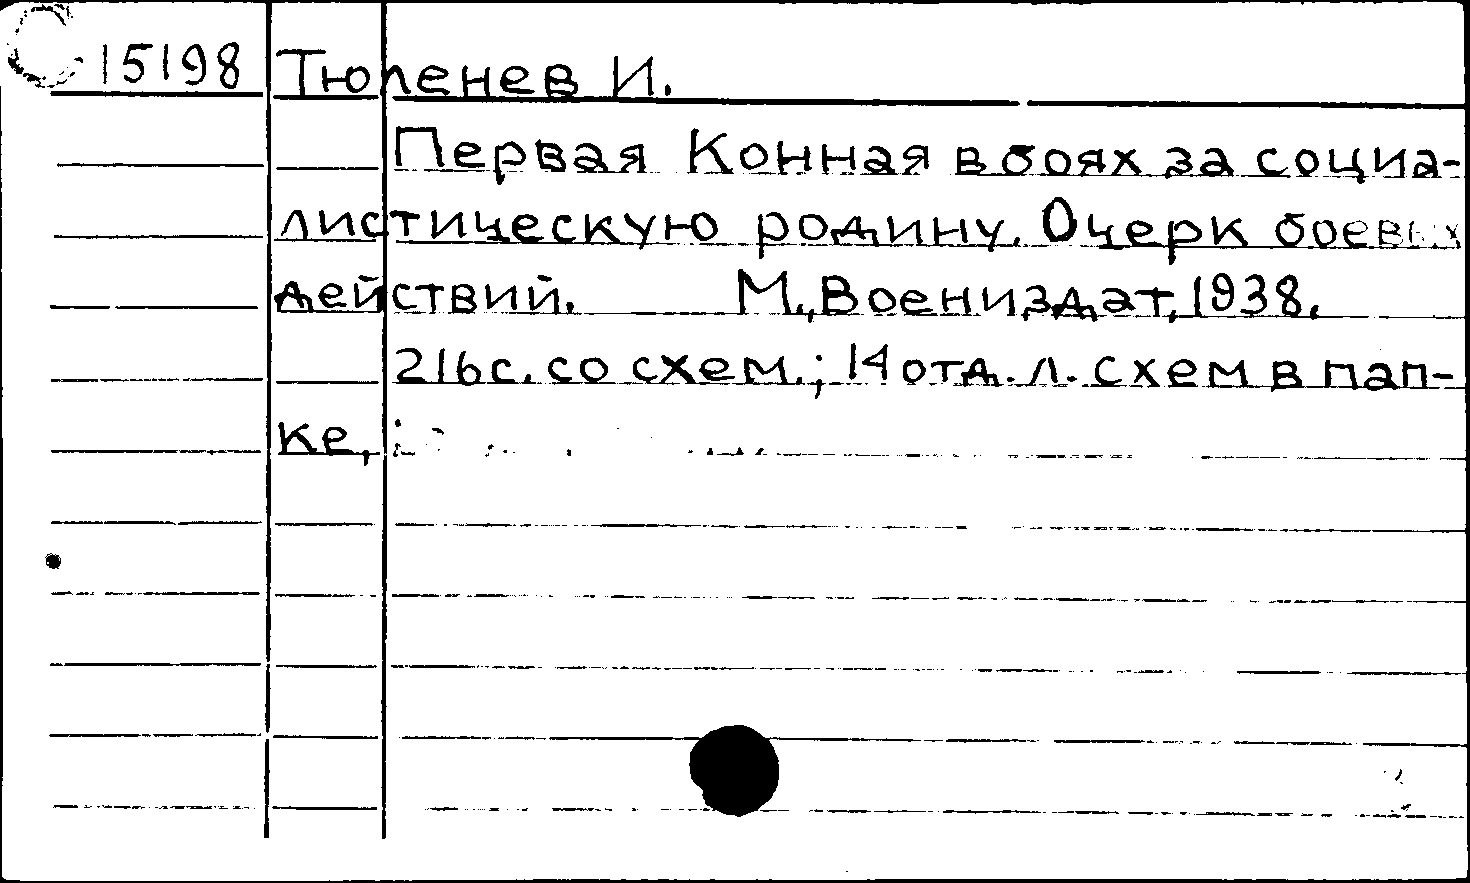 15198 Тюленев И.
Первая Конная в боях за социа-
листическую родину. Очерк боевых
действий. М., Воениздат, 1938.
216 с. со схем.; 14 отд. л. схем в пап-
ке,